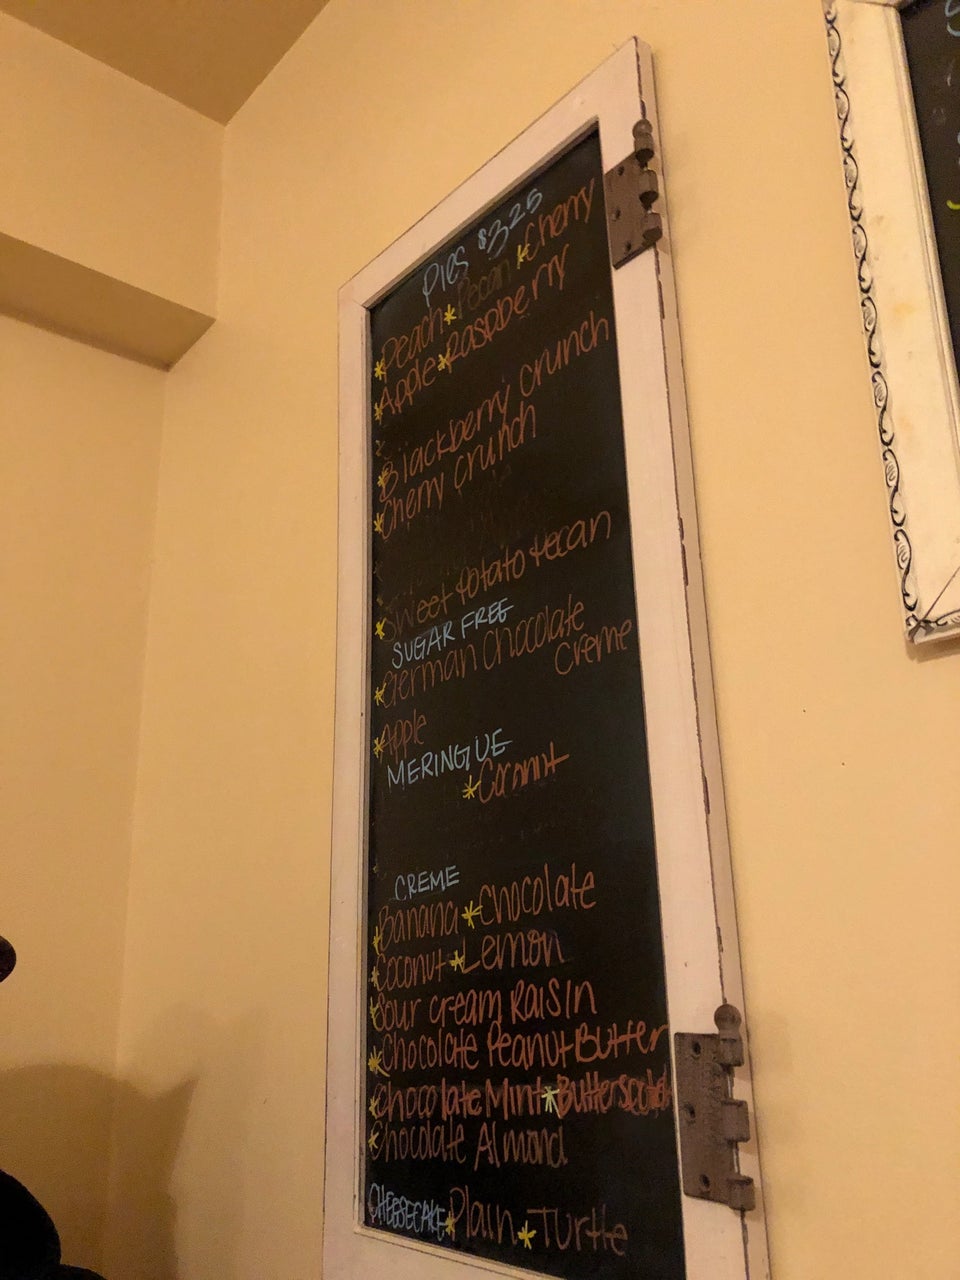 Pies $3.25
*Peach *Pecan *Cherry
*Apple *Raspberry
*Blackberry Crunch
*Cherry Crunch
*Sweet Potato Pecan
SUGAR FREE
*German Chocolate
Creme
*Apple
MERINGUE
*Coconut
CREME
*Banana *Chocolate
*Coconut *Lemon
*Sour Cream Raisin
*Chocolate Peanut Butter
*Chocolate Mint *Butterscotch
*Chocolate Almond
CHEESECAKE *Plain *Turtle